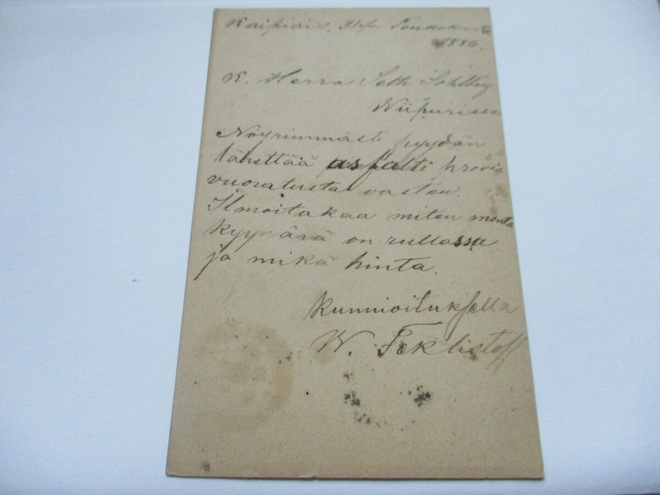 Kaipiais, 31 p. Toukokuuta
1886.
K. Herra Seth Sohlberg
Wiipurissa
Nöyrimmästi pyydän
lähettää asfalti provia
vuoratusta vasten.
Ilmoitakaa miten monta
kyynärä on rullassa
ja mikä hinta.
Kunnioituksella
W. Feklistoff